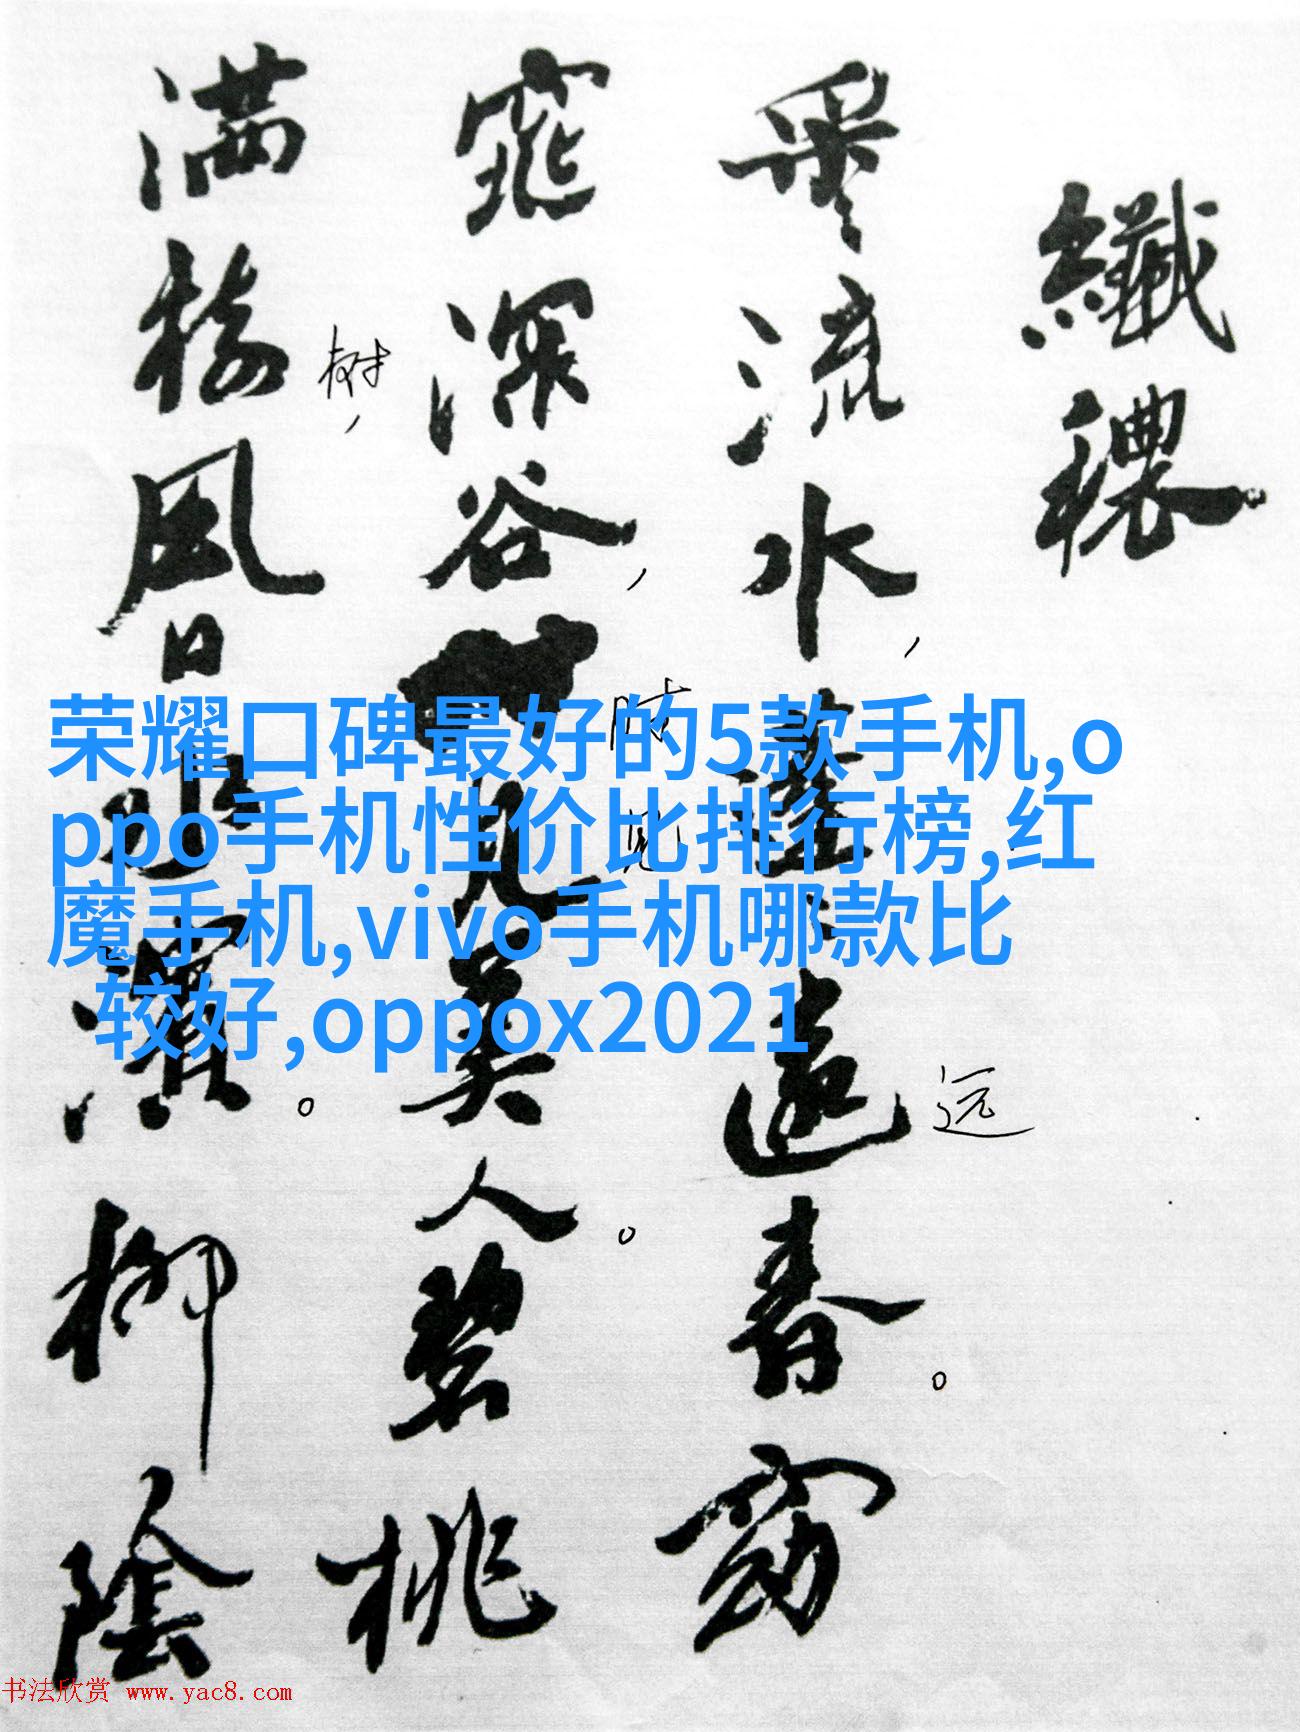 纖穠
采〻流水，蓬〻遠春。窈
远
窕深谷，見美人。碧桃
时
见
满樹風日水濱。柳陰
树，
荣耀口碑最好的5款手机,o
ppo手机性价比排行榜,红
魔手机,vivo手机哪款比
较好,oppox2021
书法欣赏 www.yac8.com